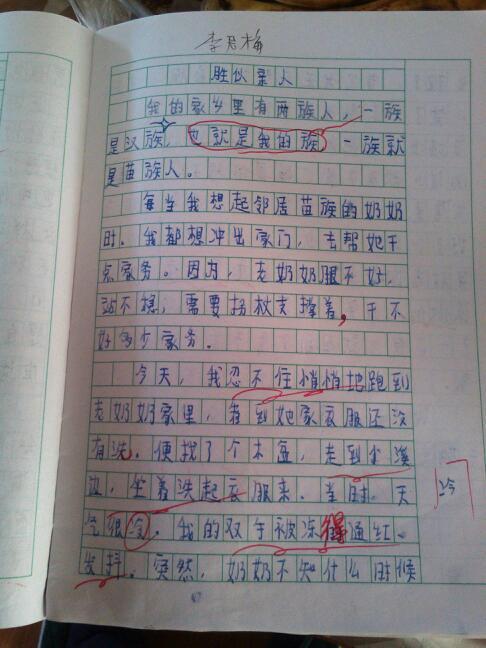 李君梅
胜似亲人
我的家乡里有两族人，一族
是汉族，也就是我的族，一族就
是苗族人。
每当我想起邻居苗族的奶奶
时，我都想冲出家门，去帮她干
点家务。因为，老奶奶腿不好，
站不稳，需要拐杖支撑着，干不
好多少家务。
今天，我忍不住悄悄地跑到
老奶奶家里，看到她家衣服还没
有洗，便找了个木盆，走到小溪
边，坐着洗起衣服来。当时，天
冷
气很冷，我的双手被冻得通红、
发抖。突然，奶奶不知什么时候